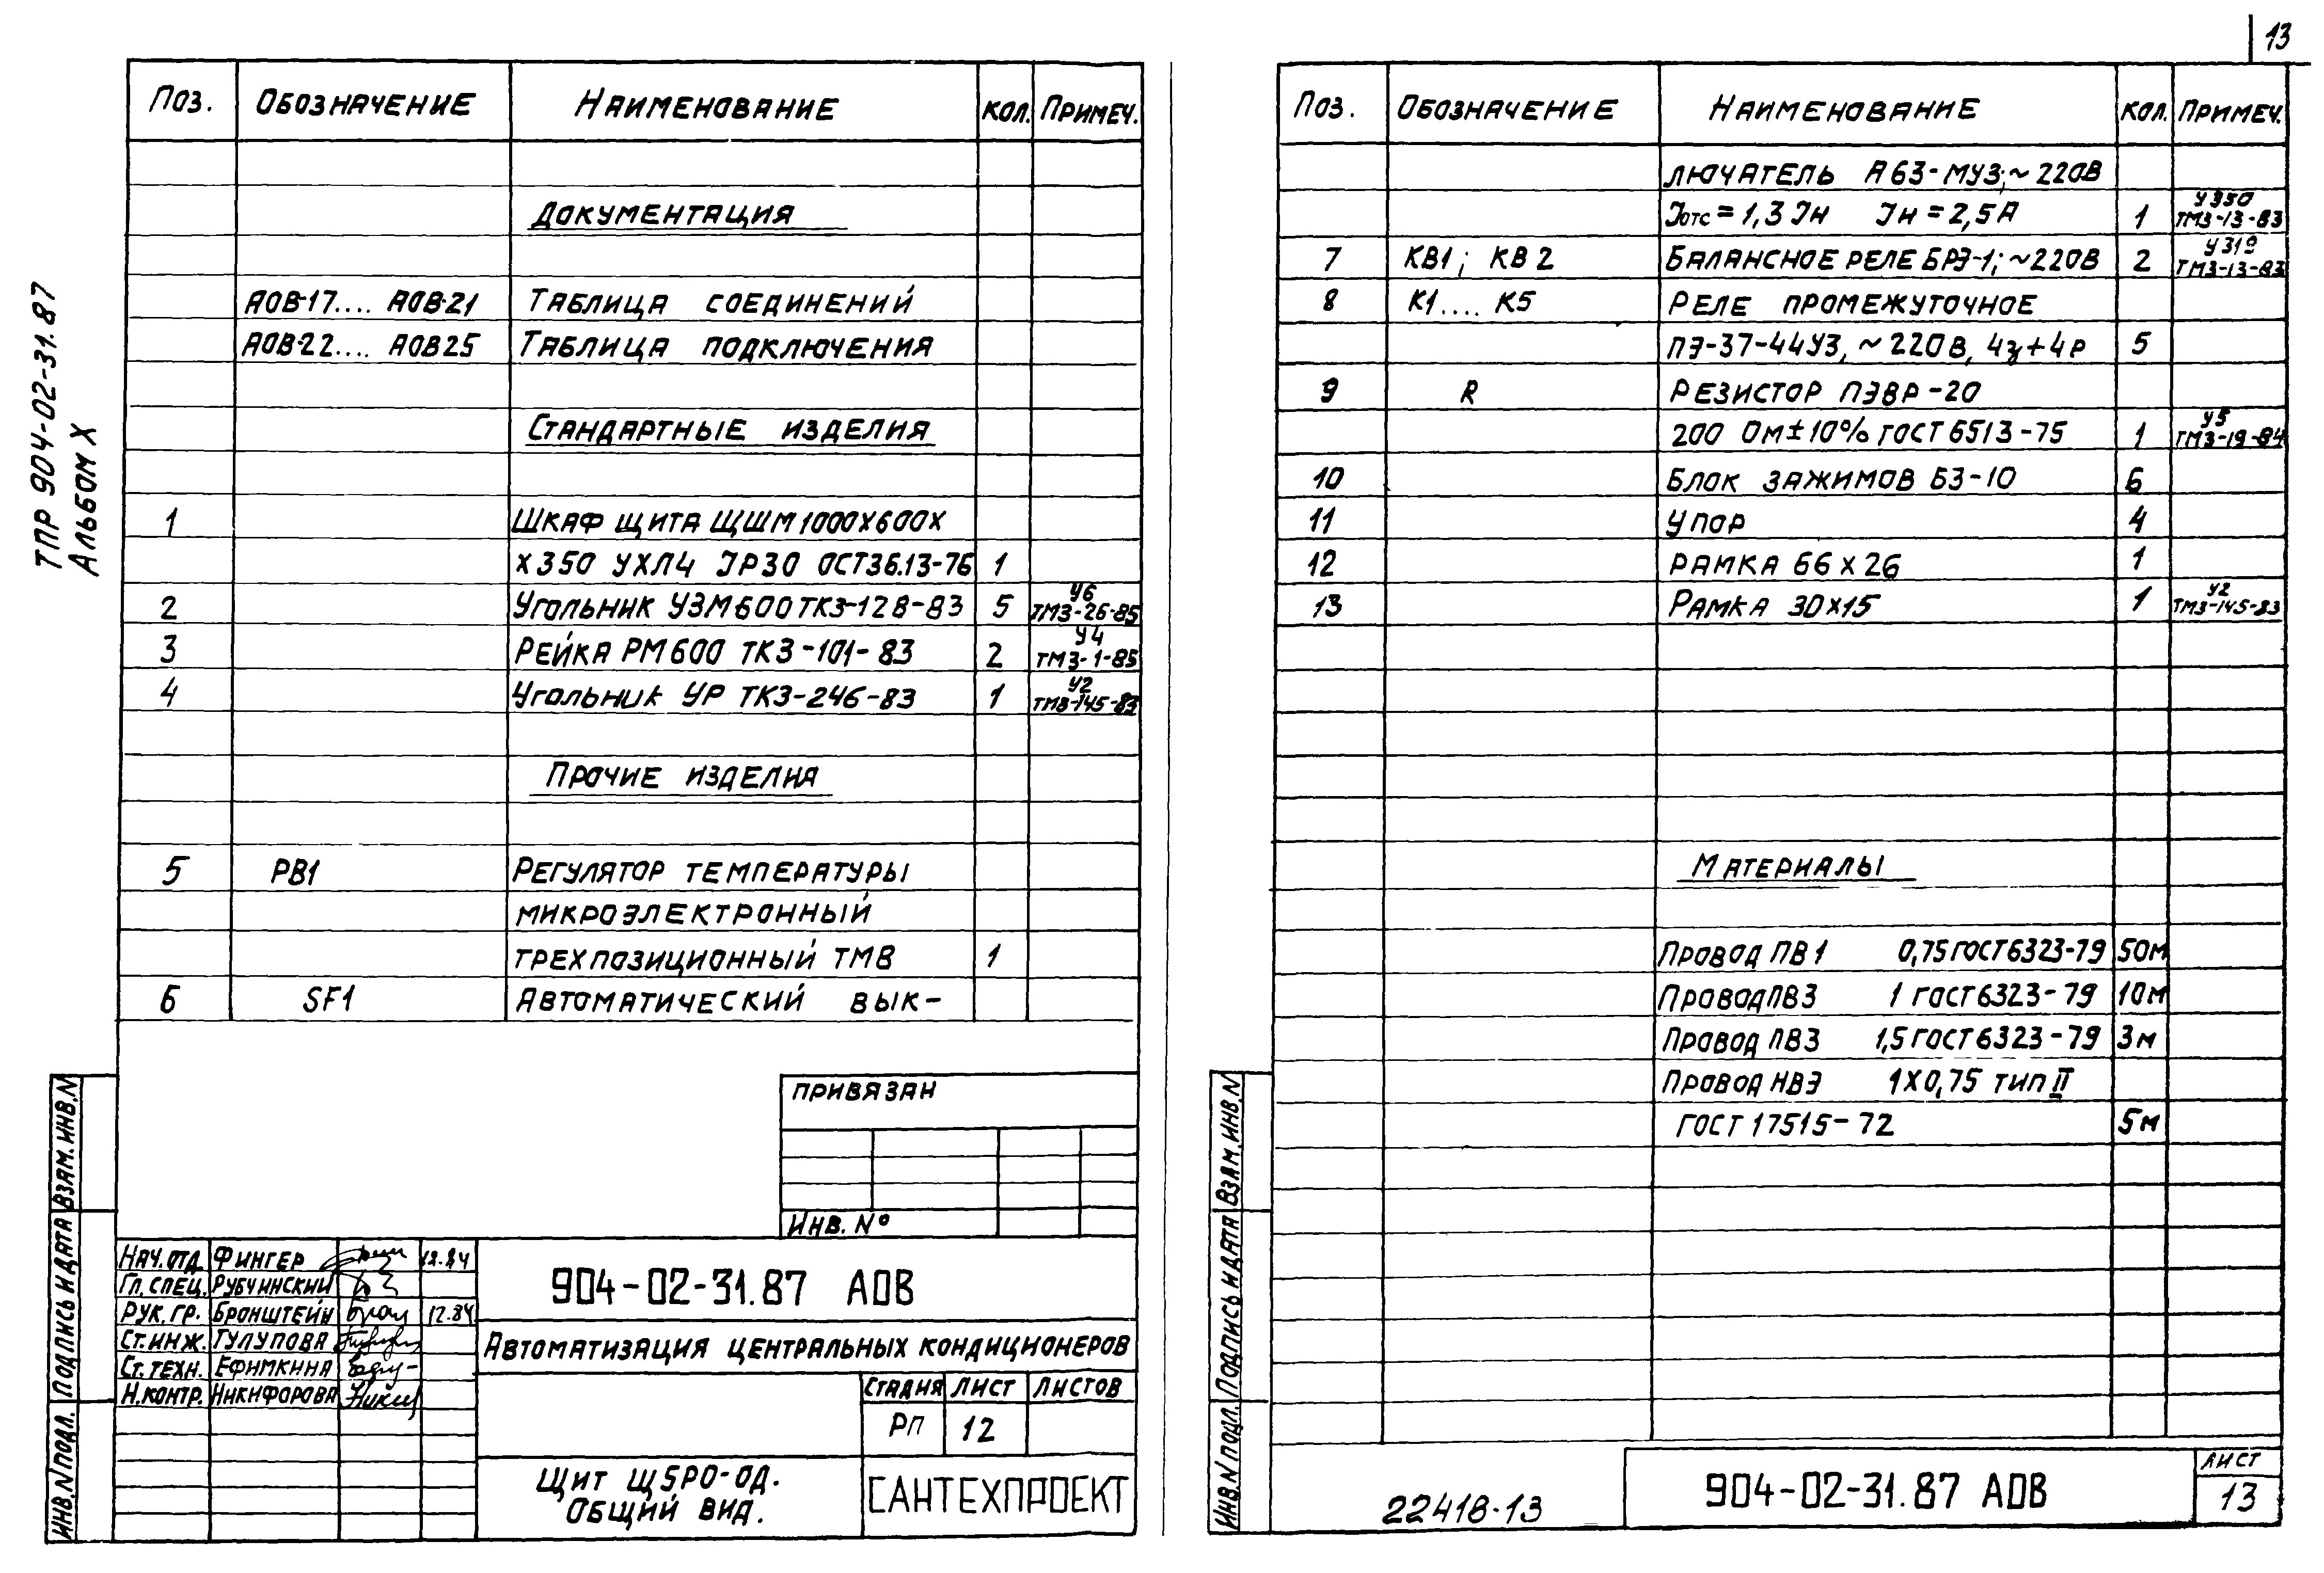 13
ТПР 904-02-31.87
Альбом X
Поз. Обозначение Наименование Кол. Примеч.
Документация
АОВ-17.... АОВ-21 Таблица соединений
АОВ-22.... АОВ25 Таблица подключения
Стандартные изделия
1 Шкаф щита ЩШМ1000х600х
х350 УХЛ4 JP30 ОСТ36.13-76 1
2 Угольник УЗМ600 ТКЗ-128-83 5 У6 ТМ3-26-85
3 Рейка РМ600 ТКЗ-101-83 2 У4 ТМ3-1-85
4 Угольник УР ТКЗ-246-83 1 У2 ТМ3-145-83
Прочие изделия
5 РВ1 Регулятор температуры
микроэлектронный
трехпозиционный ТМ8 1
6 SF1 Автоматический вык-
Привязан
Инв. №
Нач. отд Фингер 12.84
Гл. спец. Рубчинский
Рук. гр. Бронштейн 12.84
Ст. инж. Тулупова
Ст. техн. Ефимкина
Н. контр. Никифорова
904-02-31.87 АОВ
Автоматизация центральных кондиционеров
Стадия Лист Листов
РП 12
Щит Щ5РО-ОД.
Общий вид.
САНТЕХПРОЕКТ
Инв. N подл. Подпись и дата Взам. инв. N
Поз. Обозначение Наименование Кол. Примеч.
лючатель А63-МУ3; ~220В
Jотс = 1,3 Jн Jн = 2,5А 1 У350 ТМ3-13-83
7 КВ1; КВ2 Балансное реле БРЭ-1; ~220В 2 У319 ТМ3-13-83
8 К1.... К5 Реле промежуточное
ПЭ-37-44У3, ~220В, 4з+4р 5
9 R Резистор ПЭВР-20
200 Ом±10% ГОСТ 6513-75 1 У5 ТМ3-19-84
10 Блок зажимов БЗ-10 6
11 Упор 4
12 Рамка 66х26 1
13 Рамка 30х15 1 У2 ТМ3-145-83
Материалы
Провод ПВ1 0,75 ГОСТ 6323-79 50м
Провод ПВ3 1 ГОСТ 6323-79 10м
Провод ПВ3 1,5 ГОСТ 6323-79 3м
Провод НВЭ 1х0,75 тип II
ГОСТ 17515-72 5м
Инв. N подл. Подпись и дата Взам. инв. N
22418-13
904-02-31.87 АОВ
Лист
13